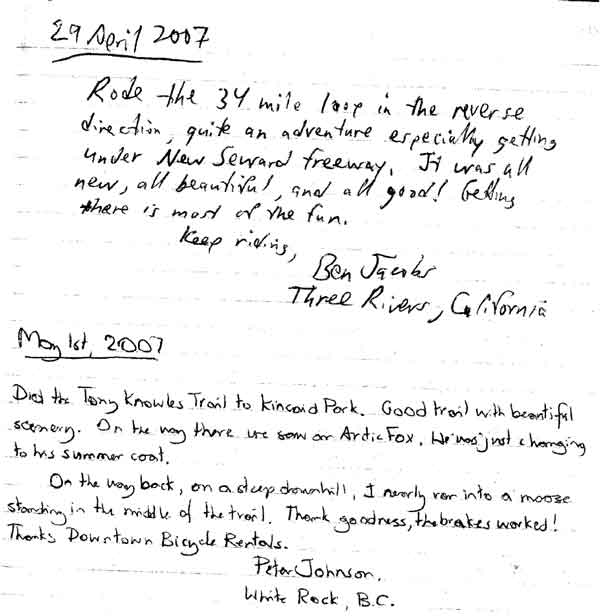 29 April 2007
Rode the 34 mile loop in the reverse
direction, quite an adventure especially getting
under New Seward freeway. It was all
new, all beautiful, and all good! Getting
there is most of the fun.
Keep riding,
Ben Jacobs
Three Rivers, California
May 1st, 2007
Died the Tony Knowles Trail to Kincaid Park. Good trail with beautiful
scenery. On the way there we saw an Artic Fox. He was just changing
to his summer coat.
On the way back, on a steep downhill, I nearly ran into a moose
standing in the middle of the trail. Thank goodness, the brakes worked!
Thanks Downtown Bicycle Rentals.
Peter Johnson.
White Rock, B.C.